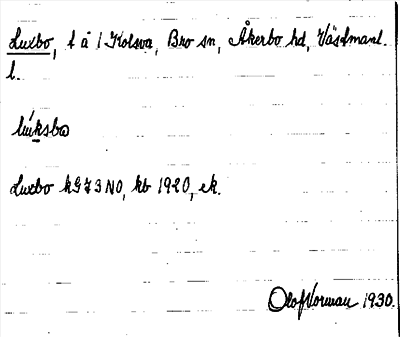 Luxbo, t å 1 Kolsva, Bro sn, Åkerbo hd, Västmanl.
l.
Luxbo kG73NO, kb 1920, ek.
Olof Vorman 1930.